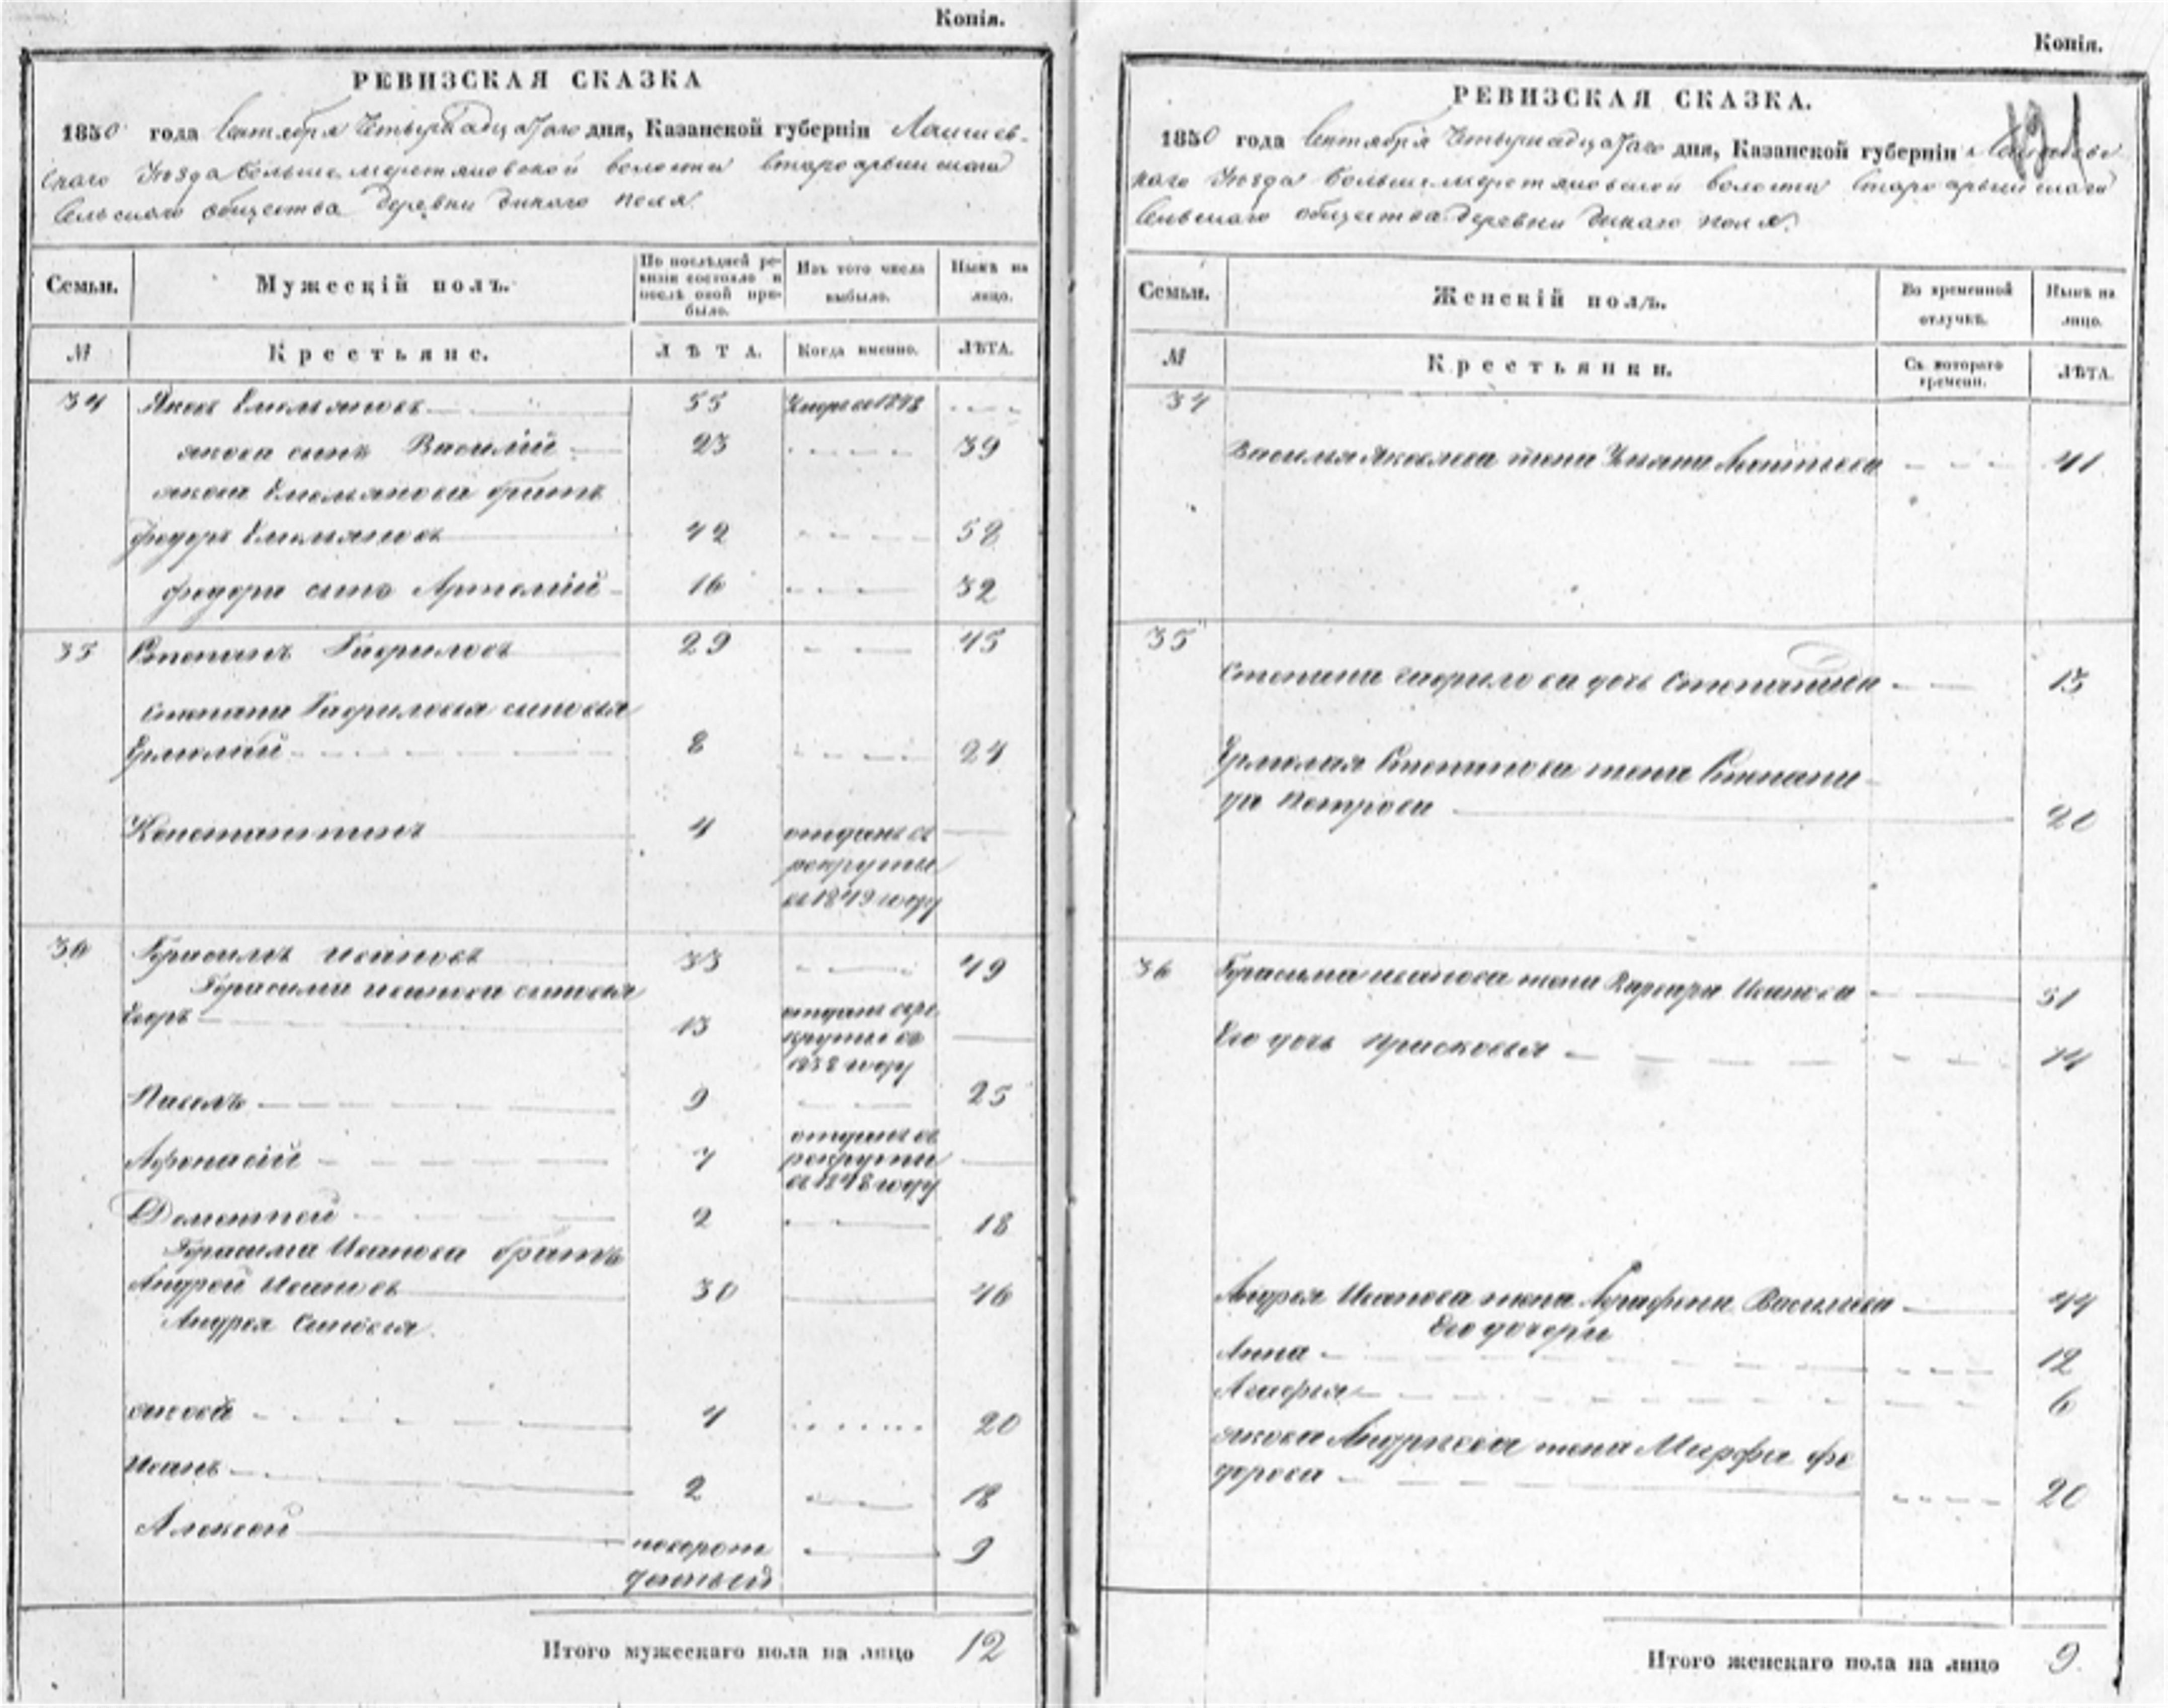 Копія.
РЕВИЗСКАЯ СКАЗКА
1850 года Сентября Четырнадцатаго дня, Казанской губерніи Лаишев-
скаго Уѣзда волости староарышскаго
Сельскаго общества деревни дикаго поля.
Семьи.
Мужескій полъ.
По послѣдней ре-
визіи состояло и
послѣ оной при-
было.
Изъ того числа
выбыло.
Нынѣ на
лицо.
№
Крестьяне.
ЛѢТА.
Когда именно.
ЛѢТА.
34 Яковъ Емельяновъ 55 Умре въ 1848
якова сынъ Василій 23 39
якова Емельянова братъ
федоръ Емельяновъ 42 58
федора сынъ Артемій 16 32
35 Степанъ Гавриловъ 29 45
Степана Гаврилова сыновья
Ермолай 8 24
Константинъ 4 отданъ въ
рекруты
въ 1849 году
36 Герасимъ Ивановъ 33 49
Герасима иванова сыновья
Егоръ 13 отданъ въ ре
круты въ
1838 году
Павелъ 9 25
Афонасій 7 отданъ въ
рекруты
въ 1848 году
Дементей 2 18
Герасима Иванова братъ
Андрей Ивановъ 30 46
Андрея Сыновья
яковъ 4 20
Иванъ 2 18
Алексей новорож
денный 9
Итого мужескаго пола на лицо 12
Копія.
РЕВИЗСКАЯ СКАЗКА.
1850 года Сентября Четырнадцатаго дня, Казанской губерніи Лаишевс
каго Уѣзда волости староарышскаго
Сельскаго общества деревни дикаго поля.
Семьи.
Женскій полъ.
Во временной
отлучкѣ.
Нынѣ на
лицо.
№
Крестьянки.
Съ котораго
времени.
ЛѢТА.
34
Василья Яковлева жена Ульяна Леонтьева 41
35
Степана гаврилова дочь Степанида 13
Ермолая Степанова жена Степани-
да Петрова 20
36 Герасима иванова жена Варвара Иванова 51
Его дочь прасковья 14
Андрея Иванова жена Аграфена Васильева 44
Его дочери
Анна 12
Агафья 6
якова Андреева жена Марфа фе
дорова 20
Итого женскаго пола на лицо 9